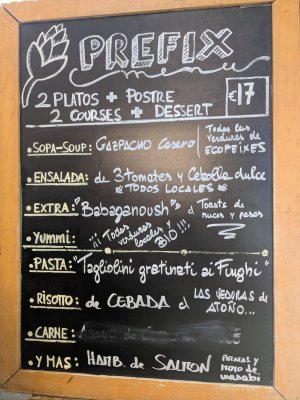 PREFIX
menu
2 PLATOS + POSTRE
2 COURSES + DESSERT
€17
• SOPA-SOUP: GAZPACHO Casero
Todas las verduras de ECOPEIXES
• ENSALADA: de 3 tomates y Cebolla dulce
* TODOS LOCALES *
• EXTRA: "Babaganoush" d Toasts de nueces y pasas
• Yummi: ¡¡¡ Todas verduras locales BIO!!!
• PASTA: "Tagliolini gratinati ai Funghi"
• RISOTTO: de CEBADA d LAS VERDURAS DE ATOÑO...
• CARNE:
• Y MAS: HAMB. de SALMON PATATAS Y MAYO DE WASABI